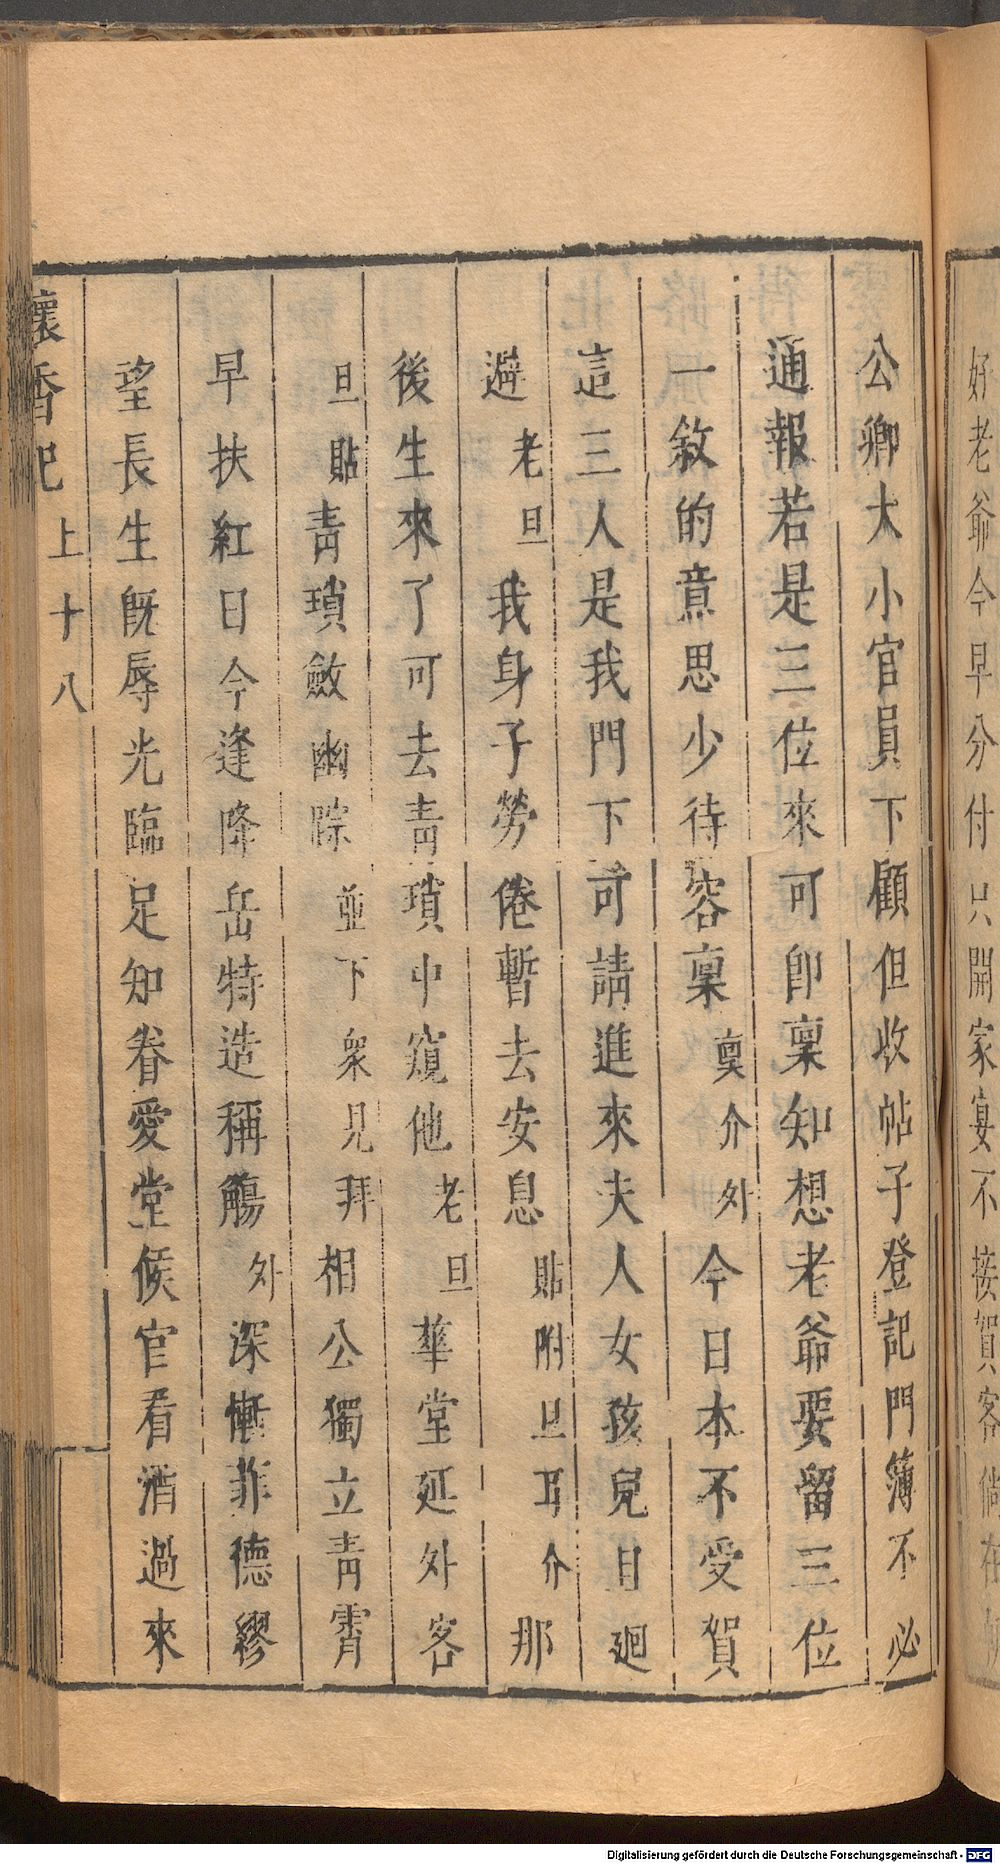 好老爺今早分付只開家宴不接賀客倘在
公卿大小官員下顧但收帖子登記門簿不必
通報若是三位來可即稟知想老爺要留三位
一敘的意思少待容稟稟介外今日本不受賀
這三人是我門下可請進來夫人女孩兒且廻
避老旦我身子勞倦暫去安息貼附旦耳介那
後生來了可去青瑣中窺他老旦華堂延外客
旦貼青瑣斂幽踪並下衆見拜相公獨立青霄
早扶紅日今逢降岳特造稱觴外深慚菲德繆
望長生旣辱光臨足知眷愛堂候官看酒過來
懷香記上十八
Digitalisierung gefördert durch die Deutsche Forschungsgemeinschaft - DFG